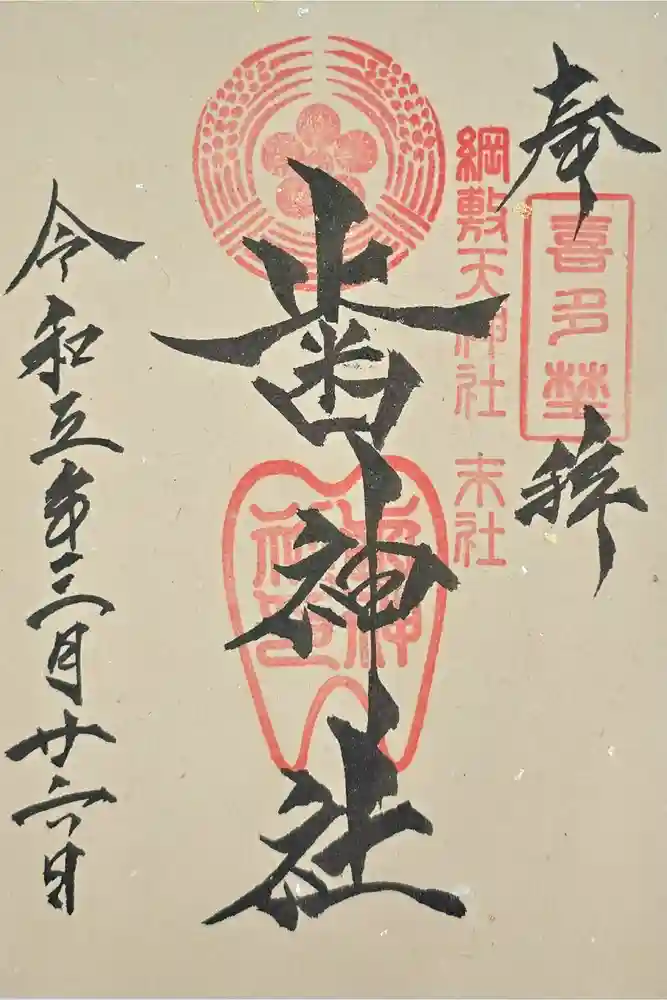 奉拝
喜多埜
綱敷天神社 末社
歯神社
令和五年三月廿六日